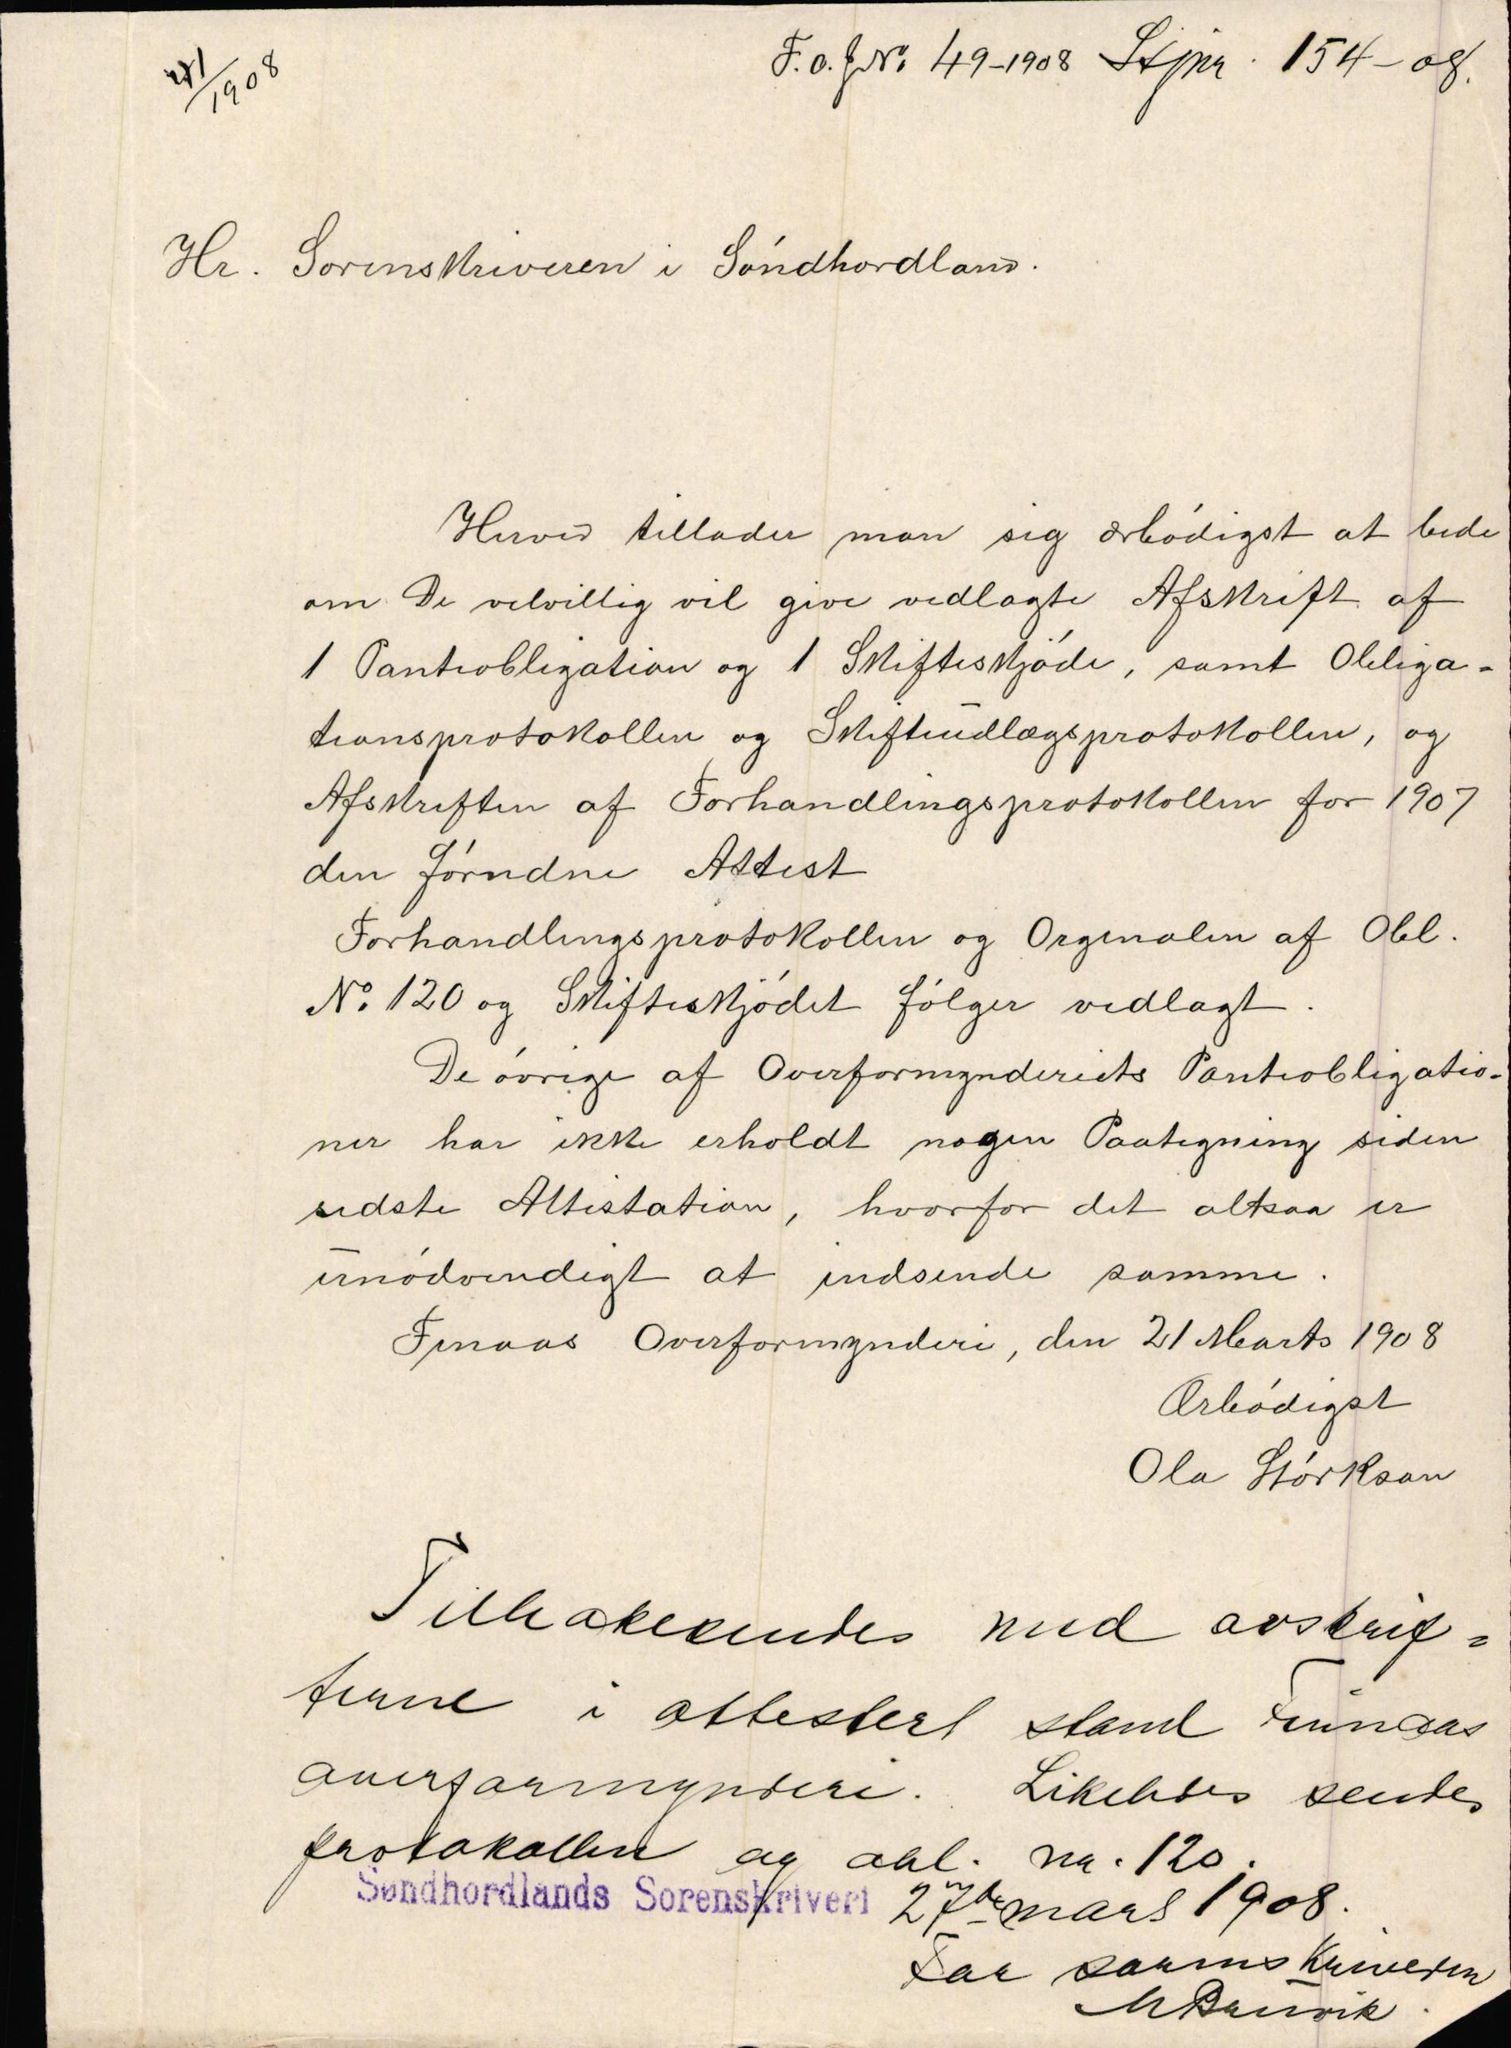 F. o. J. No. 49-1908 Stjnr. 154-08.
1908
Hr. Sorenskriveren i Søndhordland.
Herved tillader man sig ærbødigst at bede
om De velvillig vil give vedlagte Afskrift af
1 Pantiobligation og 1 Skifteskjøde, samt Obliga-
tionsprotokollen og Skifteudlægsprotokollen, og
Afskriften af Forhandlingsprotokollen for 1907
den førndne Attest
Forhandlingsprotokollen og Orginalen af Obl.
No. 120 og Skifteskjødet følger vedlagt.
De øvrige af Overformynderiets Panteobligatio-
ner har ikke erholdt nogen Paategning siden
sidste Attestation, hvorfor det altsaa er
unødvendigt at indsende samme.
Finaas Overformynderi, den 21 Marts 1908
Ærbødigst
Ola Størkson
Tilbakesendes med avskrif-
terne i attestert stand Finnaas
overformynderi. Likeledes sendes
protokollen og obl. nr. 120.
Søndhordlands Sorenskriveri 27de mars 1908.
For sorenskriveren